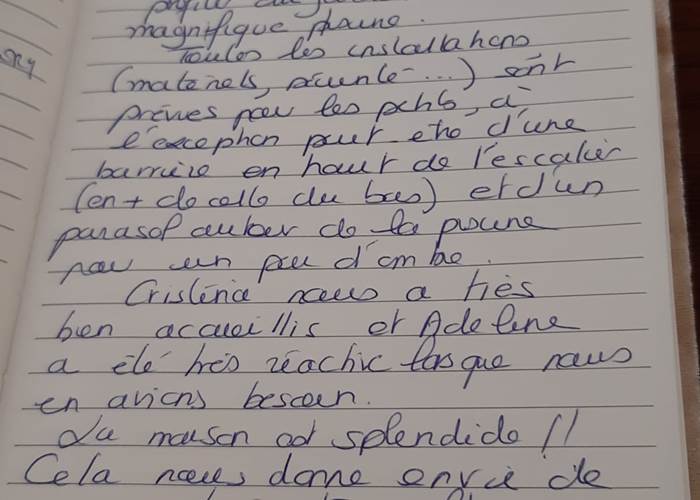 profite du
magnifique piscine.
Toutes les installations
(matériels, sécurité...) sont
prévues pour les petits, à
l'exception peut être d'une
barrière en haut de l'escalier
(en + de celle du bas) et d'un
parasol autour de la piscine
pour un peu d'ombre.
Cristina nous a très
bien accueillis et Adeline
a été très réactive lorsque nous
en avions besoin.
La maison est splendide !!
Cela nous donne envie de